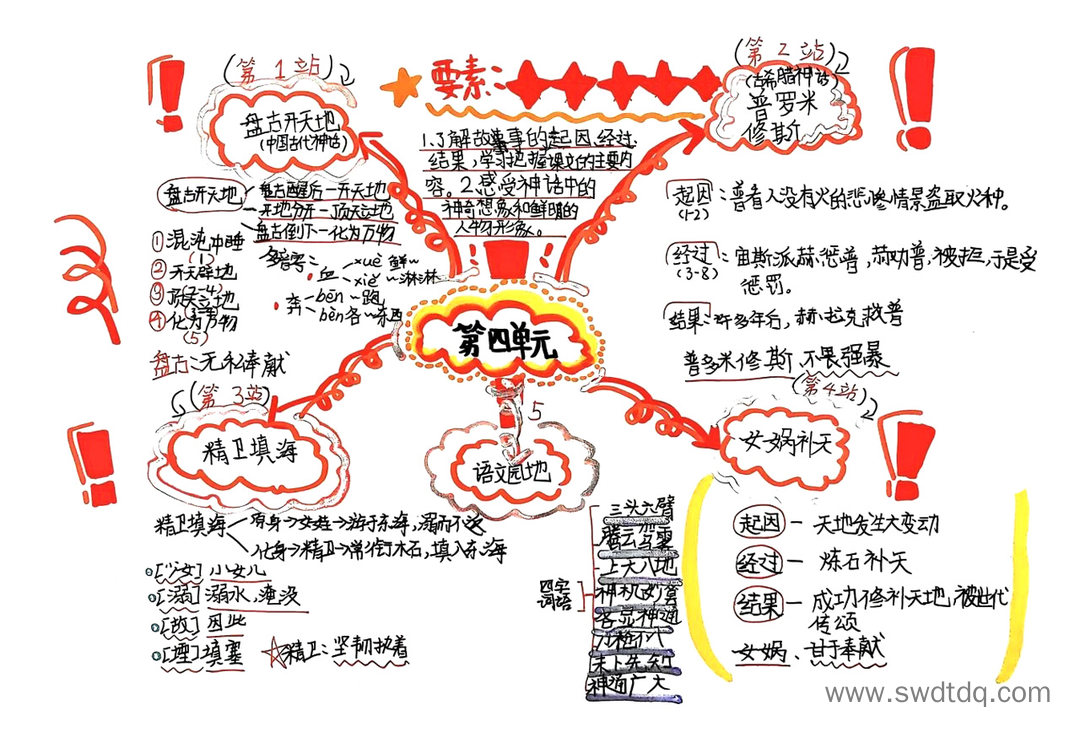 (第1站)
盘古开天地
(中国古代神话)
要素:
1.了解故事的起因、经过、
结果,学习把握课文的主要内
容。2.感受神话中的
神奇想象和鲜明的
人物形象。
(第2站)
(古希腊神话)
普罗米
修斯
盘古开天地
盘古醒后—开天地
天地分开—顶天立地
盘古倒下—化为万物
①混沌冲睡
(1)
②开天辟地
(2-4)
③顶天立地
④化为万物
(5)
盘古:无私奉献
多音字:
血
xuè 鲜~
xiě ~淋淋
奔
bēn ~跑
bèn 各~东西
起因:普看人没有火的悲惨情景盗取火种。
(1-2)
经过:宙斯派赫惩普,劝普,被拒,于是受
(3-8)
惩罚。
结果:许多年后,赫·拉克救普
普多米修斯,不畏强暴
第四单元
(第3站)
精卫填海
精卫填海
原身→女娃→游于东海,溺而不返
化身→精卫→常衔木石,填入东海
[少女] 小女儿
[溺] 溺水,淹没
[故] 因此
[堙] 填塞
精卫:坚韧执着
5
语文园地
四字
词语
三头六臂
腾云驾雾
上天入地
神机妙算
各显神通
未卜先知
神通广大
(第4站)
女娲补天
起因—天地发生大变动
经过—炼石补天
结果—成功修补天地,被世代
传颂
女娲、甘于奉献
www.swdtdq.com